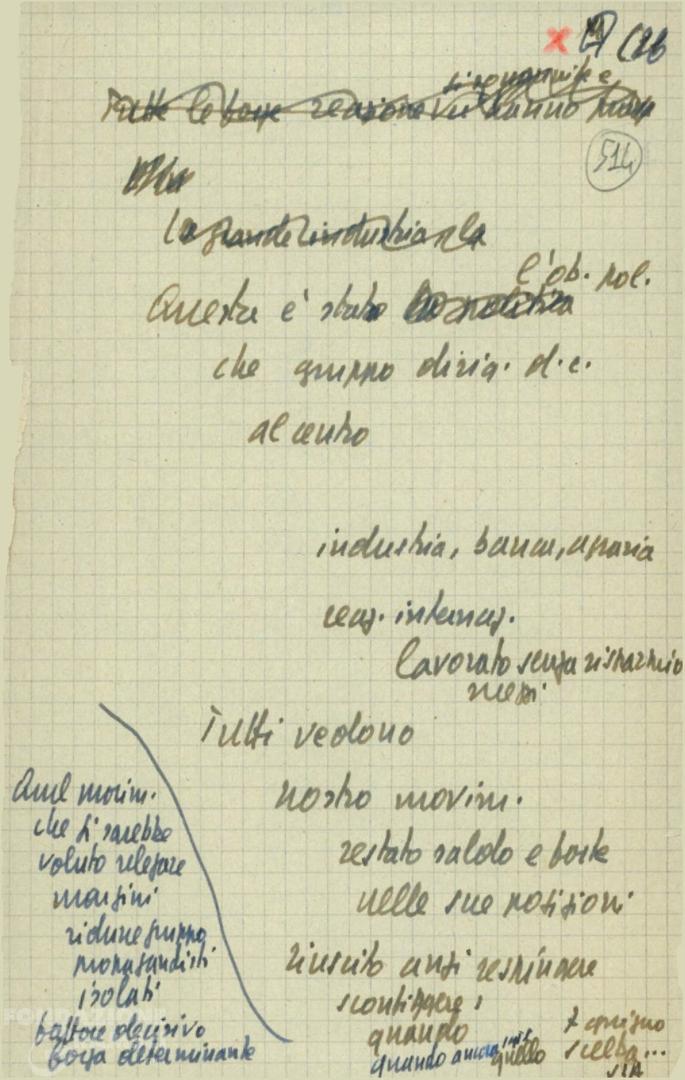 (26
514
si sono unite e
Tutte le forze reazione vi hanno
La grande industria, la
l'ob. pol.
Questa è stato la politica
che gruppo dirig. d.c.
al centro
industria, banca, agraria
reaz. internaz.
lavorato senza risparmio
mezzi
Tutti vedono
nostro movim.
restato saldo e forte
nelle sue posizioni
riuscito anzi respingere
scontiggere
quando
quando ancora quello
scelba...
sia
Quel movim.
che si sarebbe
voluto relegare
margini
ridurre gruppo
propagandisti
isolati
fattore decisivo
forza determinante